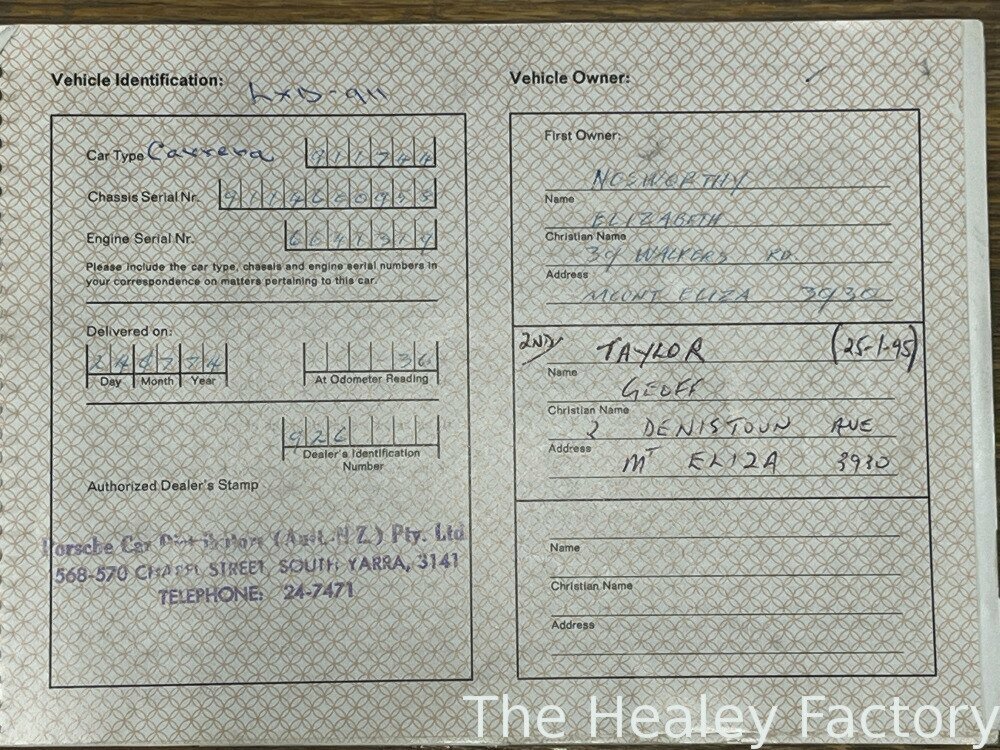 Vehicle Identification:
LXD-911
Car Type Carrera 911744
Chassis Serial Nr. 9114600953
Engine Serial Nr. 6641314
Please include the car type, chassis and engine serial numbers in
your correspondence on matters pertaining to this car.
Delivered on:
24 4 74 36
Day Month Year At Odometer Reading
926
Dealer's Identification
Number
Authorized Dealer's Stamp
Porsche Car Distributors (Aust. N.Z.) Pty. Ltd
568-570 CHAPEL STREET, SOUTH YARRA, 3141
TELEPHONE: 24-7471
Vehicle Owner:
First Owner:
NOSWORTHY
Name
ELIZABETH
Christian Name
39 WALKERS RD.
Address
MOUNT ELIZA 3930
2ND TAYLOR (25-1-95)
Name
GEOFF
Christian Name
2 DENISTOUN AVE
Address
MT ELIZA 3930
Name
Christian Name
Address
The Healey Factory